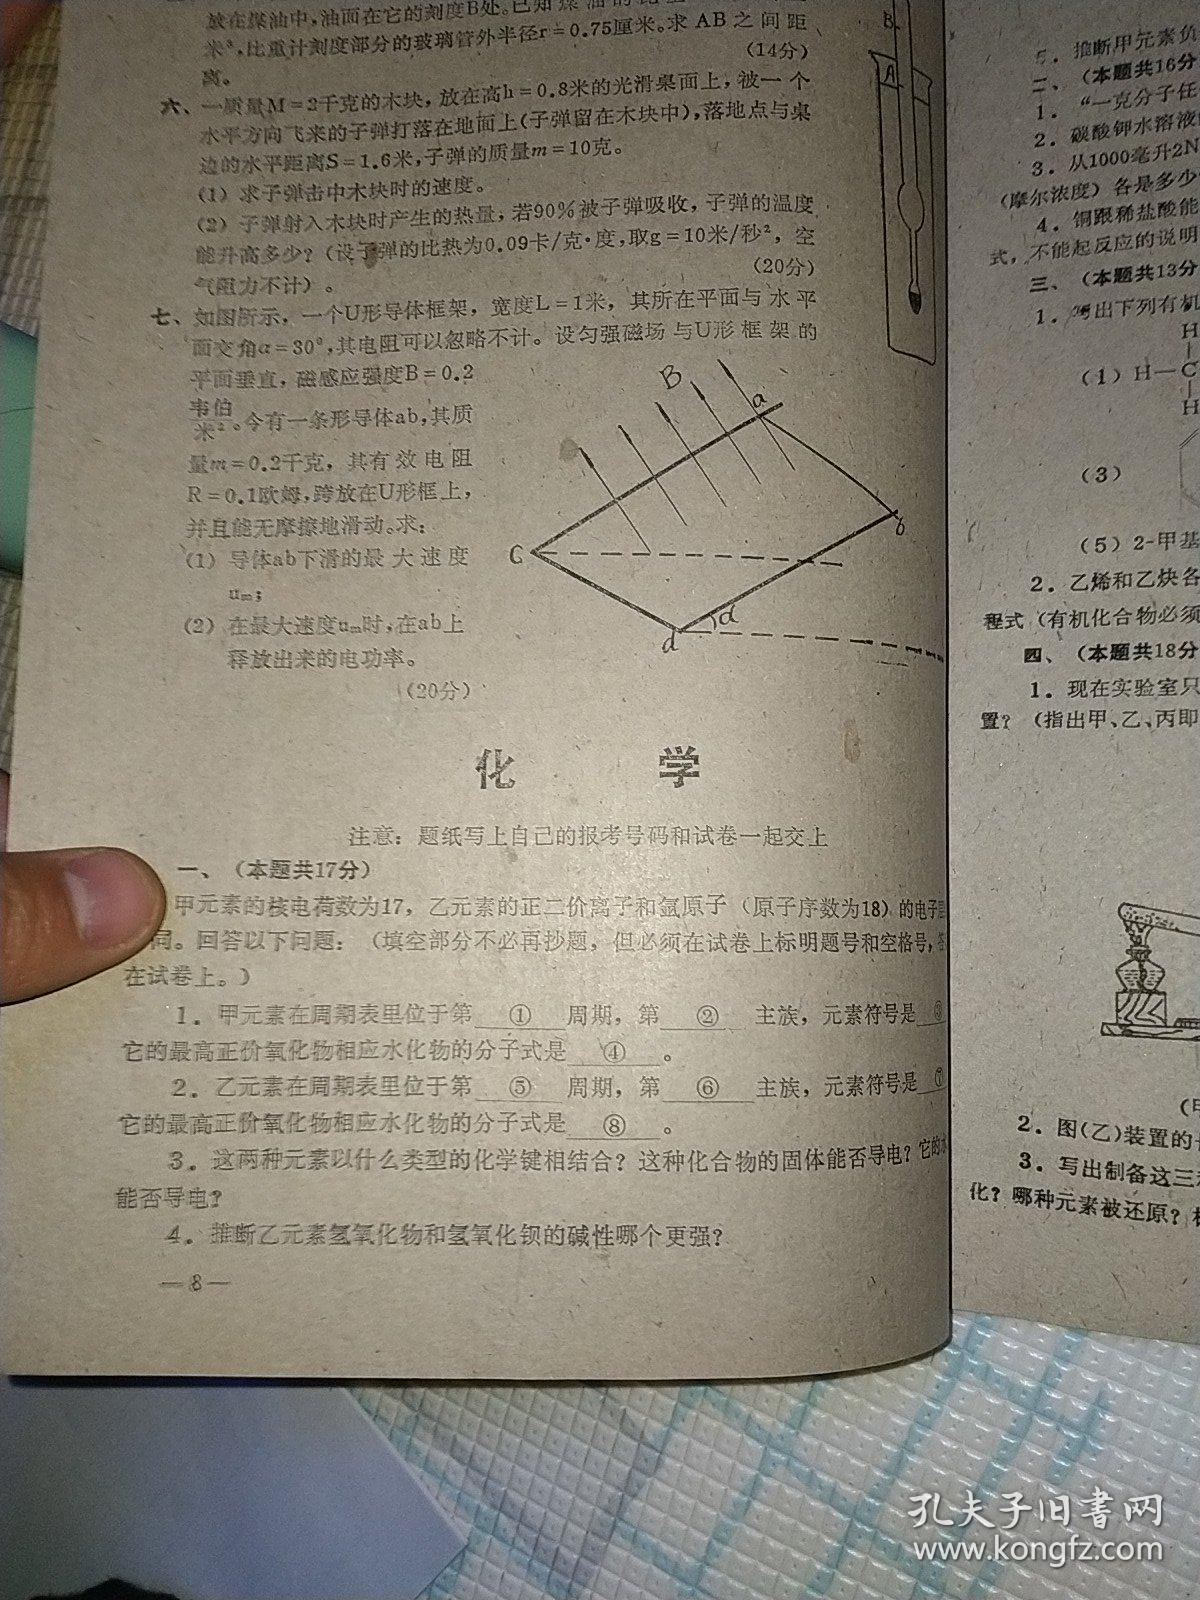 放在煤油中,油面在它的刻度B处。已知煤油的比重
米³,比重计刻度部分的玻璃管外半径r=0.75厘米。求AB之间距
离。 (14分)
六、一质量M=2千克的木块,放在高h=0.8米的光滑桌面上,被一个
水平方向飞来的子弹打落在地面上(子弹留在木块中),落地点与桌
边的水平距离S=1.6米,子弹的质量m=10克。
(1)求子弹击中木块时的速度。
(2)子弹射入木块时产生的热量,若90%被子弹吸收,子弹的温度
能升高多少?(设子弹的比热为0.09卡/克·度,取g=10米/秒²,空
气阻力不计)。 (20分)
七、如图所示,一个U形导体框架,宽度L=1米,其所在平面与水平
面交角α=30°,其电阻可以忽略不计。设匀强磁场与U形框架的
平面垂直,磁感应强度B=0.2
韦伯
米²。今有一条形导体ab,其质
量m=0.2千克,其有效电阻
R=0.1欧姆,跨放在U形框上,
并且能无摩擦地滑动。求:
(1)导体ab下滑的最大速度
um;
(2)在最大速度um时,在ab上
释放出来的电功率。
(20分)
B
A
B
a
b
C
d
α
化 学
注意:题纸写上自己的报考号码和试卷一起交上
一、(本题共17分)
甲元素的核电荷数为17,乙元素的正二价离子和氩原子(原子序数为18)的电子层
同。回答以下问题:(填空部分不必再抄题,但必须在试卷上标明题号和空格号,答
在试卷上。)
1.甲元素在周期表里位于第 ① 周期,第 ② 主族,元素符号是 ③
它的最高正价氧化物相应水化物的分子式是 ④ 。
2.乙元素在周期表里位于第 ⑤ 周期,第 ⑥ 主族,元素符号是 ⑦
它的最高正价氧化物相应水化物的分子式是 ⑧ 。
3.这两种元素以什么类型的化学键相结合?这种化合物的固体能否导电?它的水
能否导电?
4.推断乙元素氢氧化物和氢氧化钡的碱性哪个更强?
—8—
5.推断甲元素负
二、(本题共16分
1.“一克分子任
2.碳酸钾水溶液
3.从1000毫升2N
(摩尔浓度)各是多少
4.铜跟稀盐酸能
式,不能起反应的说明
三、(本题共13分
1.写出下列有机
H
(1)H—C
H
(3)
(5)2-甲基
2.乙烯和乙炔各
程式(有机化合物必须
四、(本题共18分
1.现在实验室只
置?(指出甲、乙、丙即
2.图(乙)装置的
3.写出制备这三
化?哪种元素被还原?
孔夫子旧书网
www.kongfz.com